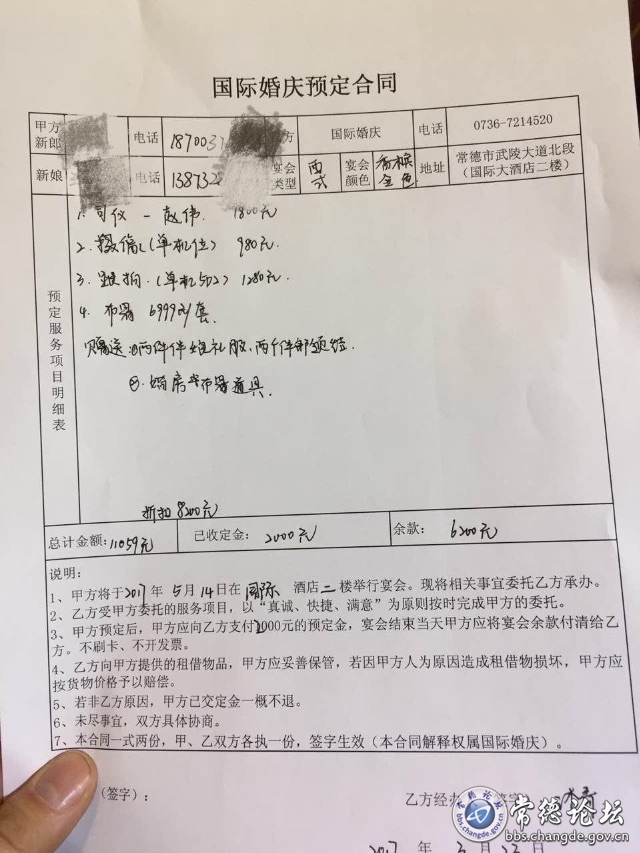 国际婚庆预定合同
甲方新郎 电话 187003 方 国际婚庆 电话 0736-7214520
新娘 电话 1387322 宴会类型 西式 宴会颜色 香槟金色 地址 常德市武陵大道北段（国际大酒店二楼）
预定服务项目明细表
1. 司仪 — 赵伟. 1800元
2. 摄像（单机位）980元.
3. 跟拍.（单机5D2）1280元.
4. 布署 6999元/套.
赠送:①两件伴娘礼服.两个伴郎领结.
②.婚房布署道具.
折扣8200元
总计金额: 11059元 已收定金: 2000元 余款: 6200元
说明:
1、甲方将于2017年 5月14日在 国际 酒店 二 楼举行宴会。现将相关事宜委托乙方承办。
2、乙方受甲方委托的服务项目，以“真诚、快捷、满意”为原则按时完成甲方的委托。
3、甲方预定后，甲方应向乙方支付2000元的预定金，宴会结束当天甲方应将宴会余款付清给乙
方。不刷卡、不开发票。
4、乙方向甲方提供的租借物品，甲方应妥善保管，若因甲方人为原因造成租借物损坏，甲方应
按货物价格予以赔偿。
5、若非乙方原因，甲方已交定金一概不退。
6、未尽事宜，双方具体协商。
7、本合同一式两份，甲、乙双方各执一份，签字生效（本合同解释权属国际婚庆）。
（签字）： 乙方经办 签字
2017 年 月 23 日
常德论坛
bbs.changde.gov.cn